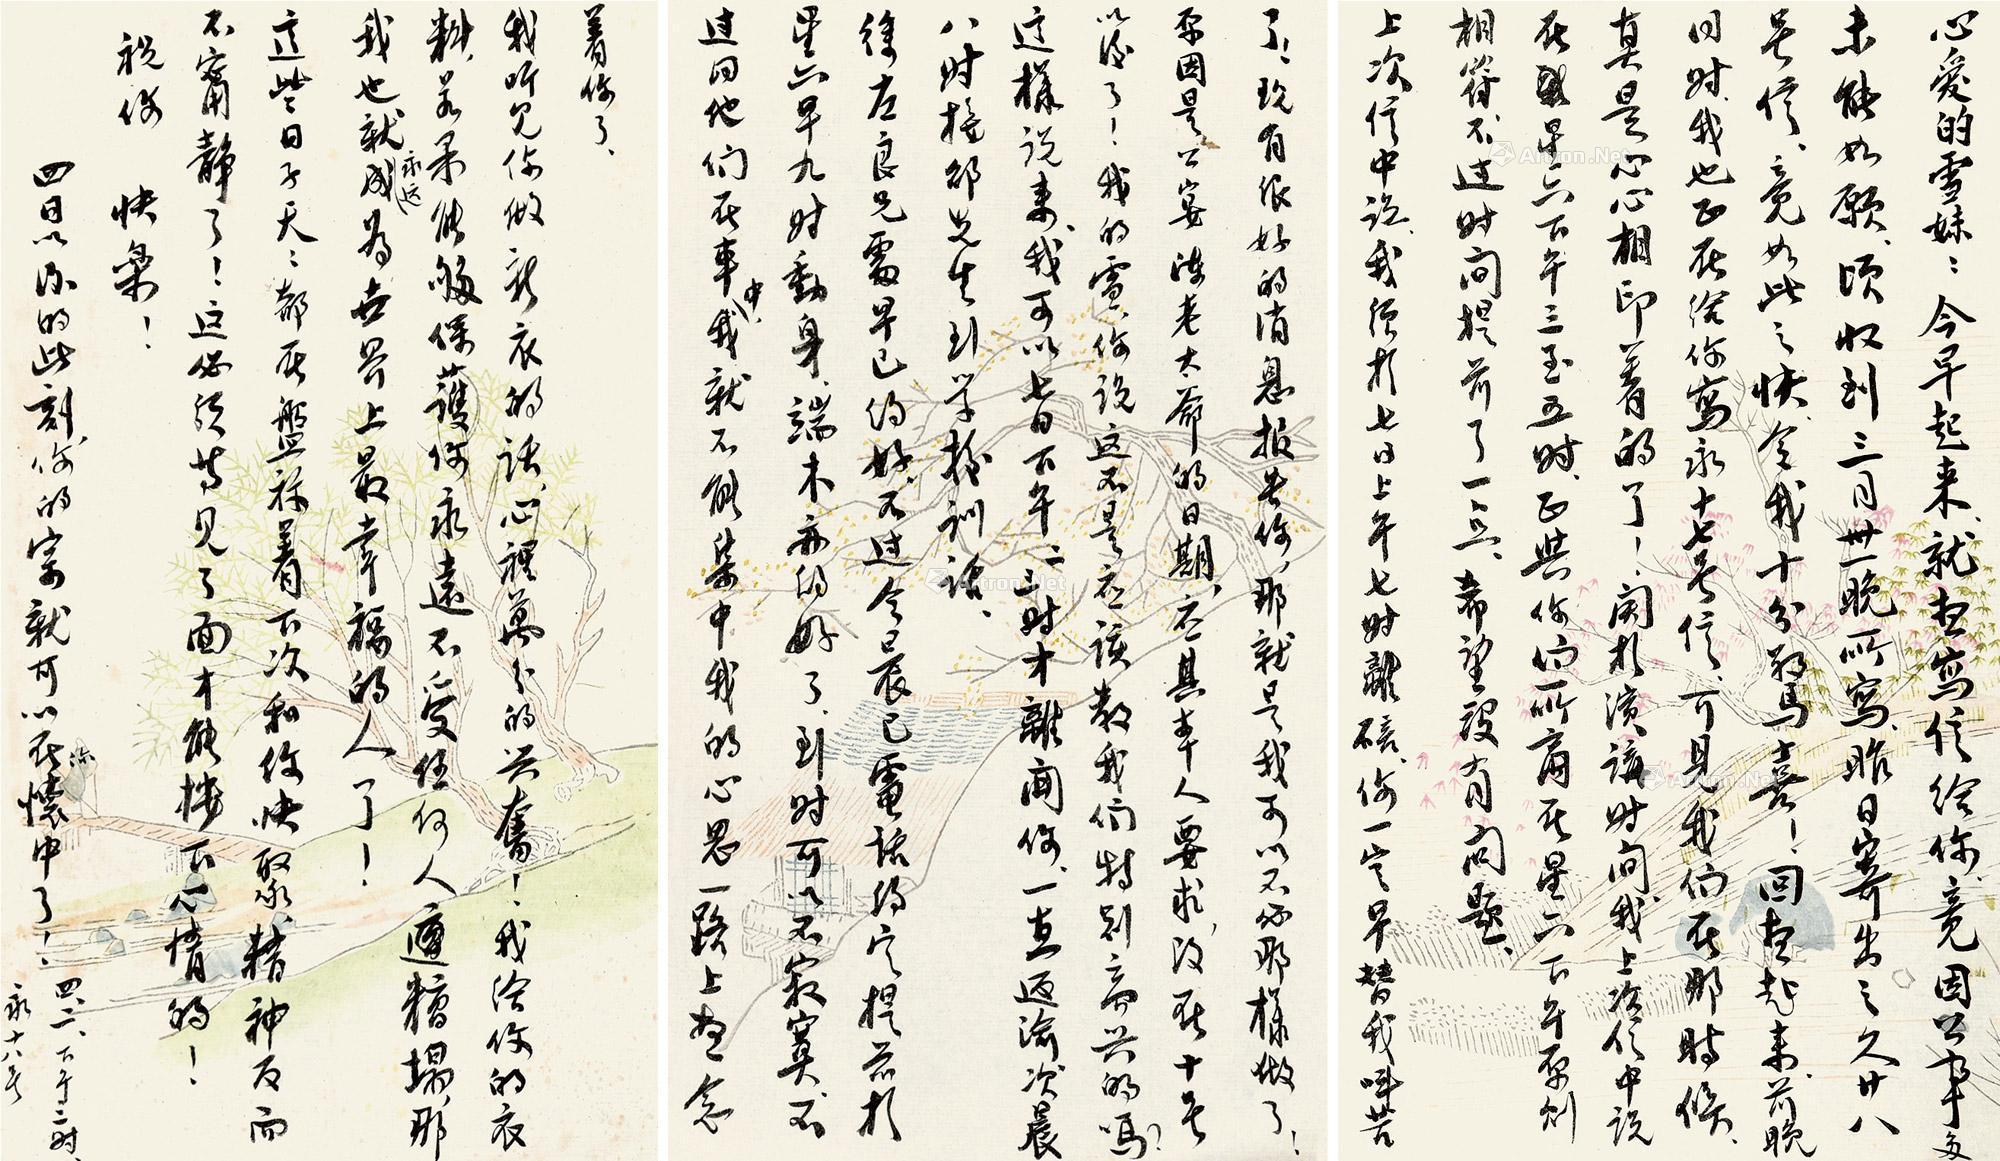 心爱的雪妹：今早起来就想写信给你，竟因公事多
未能如愿、顷收到三月卅一晚所写、昨日寄出之久廿八
号信、竟如此之快、令我十分驚喜！回想起来、前晚
同时我也正在给你寫永十七号信、可见我们在那時候、
真是心心相印着的了！関於演講时间、我上次信中说
在星六下午三至五时、正與你们所商在星六下午原则
相符、不过时间提前了一点、希望没有问题、
上次信中说、我须於七日上午七时離碚、你一定早替我叫苦
了！现有很好的消息报告你、那就是我可以不必那樣做了！
原因是公宴陈老太爺的日期、应其本人要求、改在十号
以后了！我的雪、你说这不是应该教我们特别高兴的嗎？
这樣说来、我可以七日下午二三时才離開你、一直返渝次晨
八时接邵先生到学校训话、
徐左良兄處早已约好、不过今晨已電話约定提前於
星六早九时動身、端木亦约好了、到时可以不寂寞、不
过同他们在車中、我就不能集中我的心思一路上想念
着你了、
我听见你做新衣的话、心裡萬分的兴奮！我给你的衣
料、若果能够保護你永遠不受任何人遭糟塌、那
我也就永远成为世界上最幸福的人了！
这些日子天天都在盤祘着下次和你快聚、精神反而
不甯静了！这必须等见了面才能按下心情的！
祝你
快樂！
四日以后的此刻、你的宗就可以在你懷中了！
四、二、下午二时、
永十八号
Artron.Net
Artron.Net
Artron.Net
Artron.Net